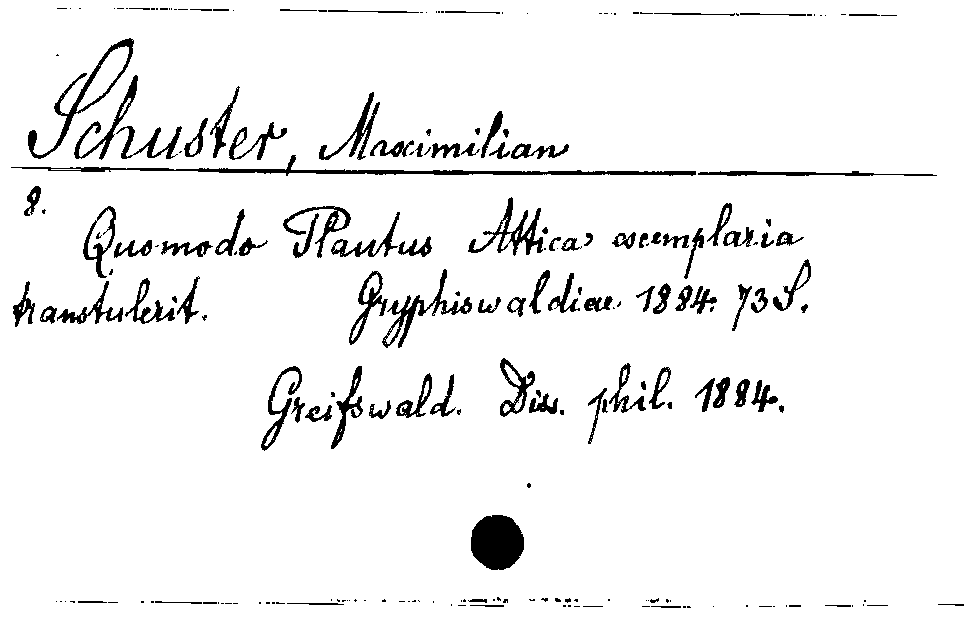 Schuster, Maximilian
8.
Quomodo Plautus Attica exemplaria
transtulerit. Gryphiswaldiae 1884. 73 S.
Greifswald. Diss. phil. 1884.